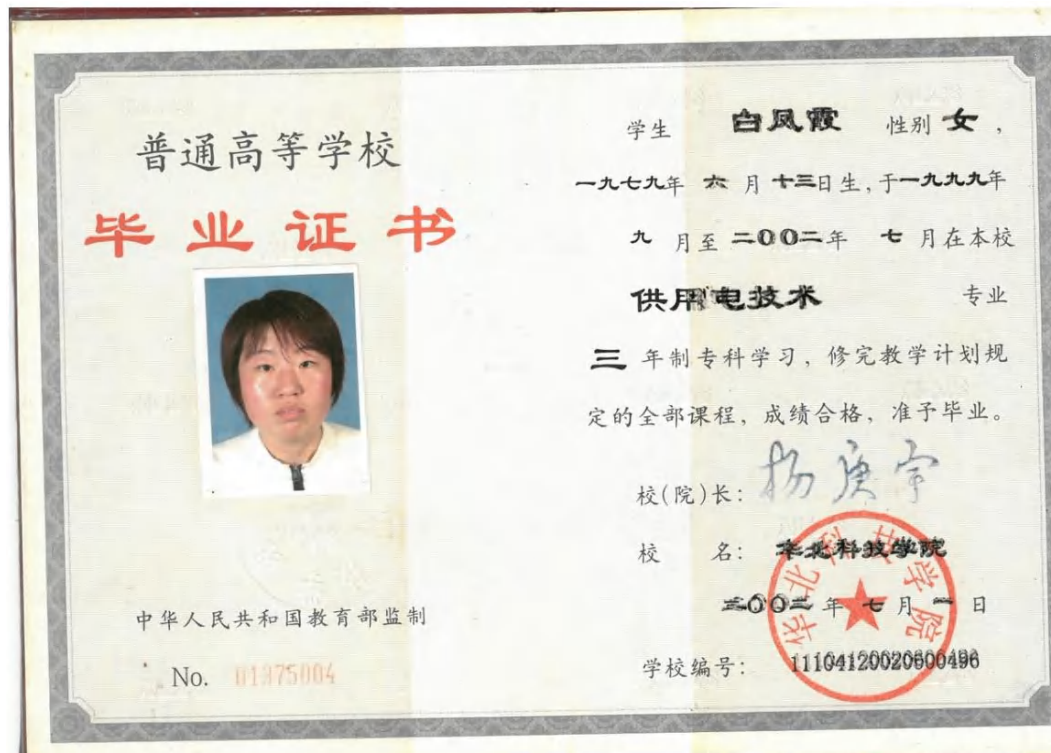 普通高等学校
毕业证书
中华人民共和国教育部监制
No. 01375004
学生 白凤霞 性别 女，
一九七九年 六 月 十三日生，于一九九九年
九 月至 二〇〇二年 七 月在本校
供用电技术 专业
三 年制专科学习，修完教学计划规
定的全部课程，成绩合格，准予毕业。
校(院)长： 杨庚宇
校 名： 华北科技学院
二〇〇二 年 七 月 一 日
华北科技学院
学校编号： 11104120020600496